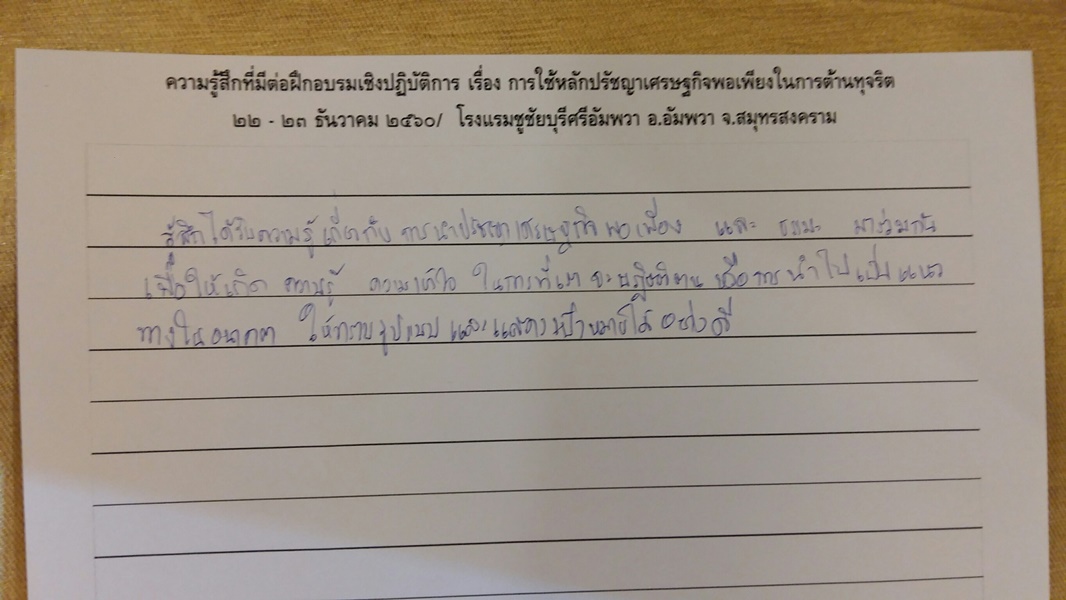 ความรู้สึกที่มีต่อฝึกอบรมเชิงปฏิบัติการ เรื่อง การใช้หลักปรัชญาเศรษฐกิจพอเพียงในการต้านทุจริต
๒๒ - ๒๓ ธันวาคม ๒๕๖๐/ โรงแรมชูชัยบุรีศรีอัมพวา อ.อัมพวา จ.สมุทรสงคราม
รู้สึกได้รับความรู้เกี่ยวกับ การนำปรัชญาเศรษฐกิจพอเพียง และ ธรรมะ มาร่วมกัน
เพื่อให้เกิด ความรู้ ความเข้าใจ ในการที่เรา จะปฏิบัติตาม หรือการนำไปเป็นแนว
ทางในอนาคต ให้ทราบรูปแบบ และแสดงเป้าหมายได้อย่างดี